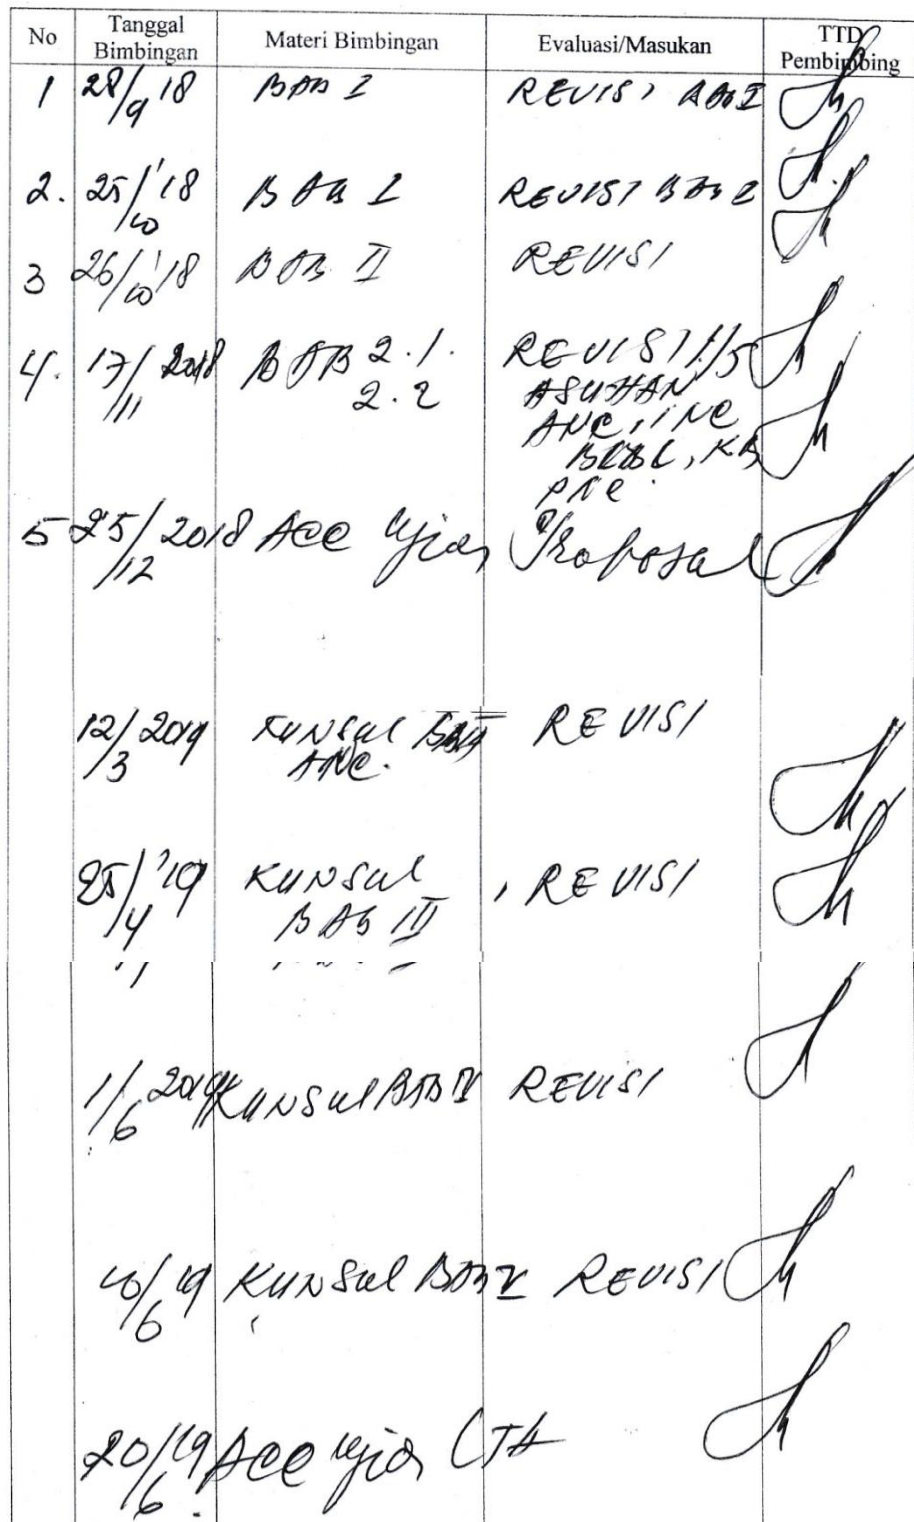 No Tanggal Bimbingan Materi Bimbingan Evaluasi/Masukan TTD Pembimbing
1 28/9 '18 BAB I REVISI BAB I
2. 25/10 '18 BAB I REVISI BAB I
3 26/10 '18 BAB II REVISI
4. 17/11 2018 BAB 2.1. REVISI
2.2 ASUHAN
ANC, INC
BBL, KB
PNC.
5 25/12 2018 ACC Ujian Proposal
12/3 2019 KUNSUL BAB III REVISI
ANC.
25/4 '19 KUNSUL REVISI
BAB III
1/6 2019 KUNSUL BAB IV REVISI
10/6 19 KUNSUL BAB V REVISI
20/6 19 ACC Ujian LTA